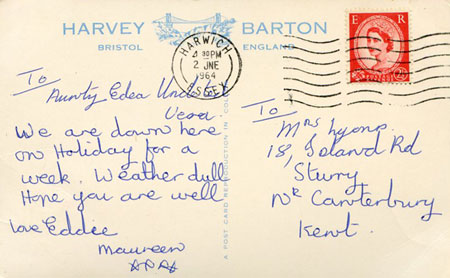 HARVEY BARTON
BRISTOL ENGLAND
HARWICH
30PM
2 JNE
1964
ESSEX
E R
To
Aunty Edea Uncle
We are down here
on Holiday for a
week. Weather dull
Hope you are well
love Eddie
Maureen
To
Mrs Lyons
18, Island Rd
Sturry
Nr Canterbury
Kent.